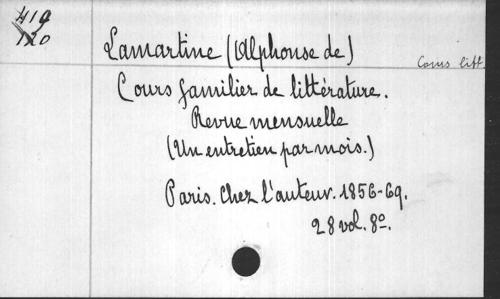 419
120
Lamartine (Alphonse de)
Cours litt.
Cours familier de littérature.
Revue mensuelle
(Un entretien par mois.)
Paris. Chez l'auteur. 1856-69.
28 vol. 8º.